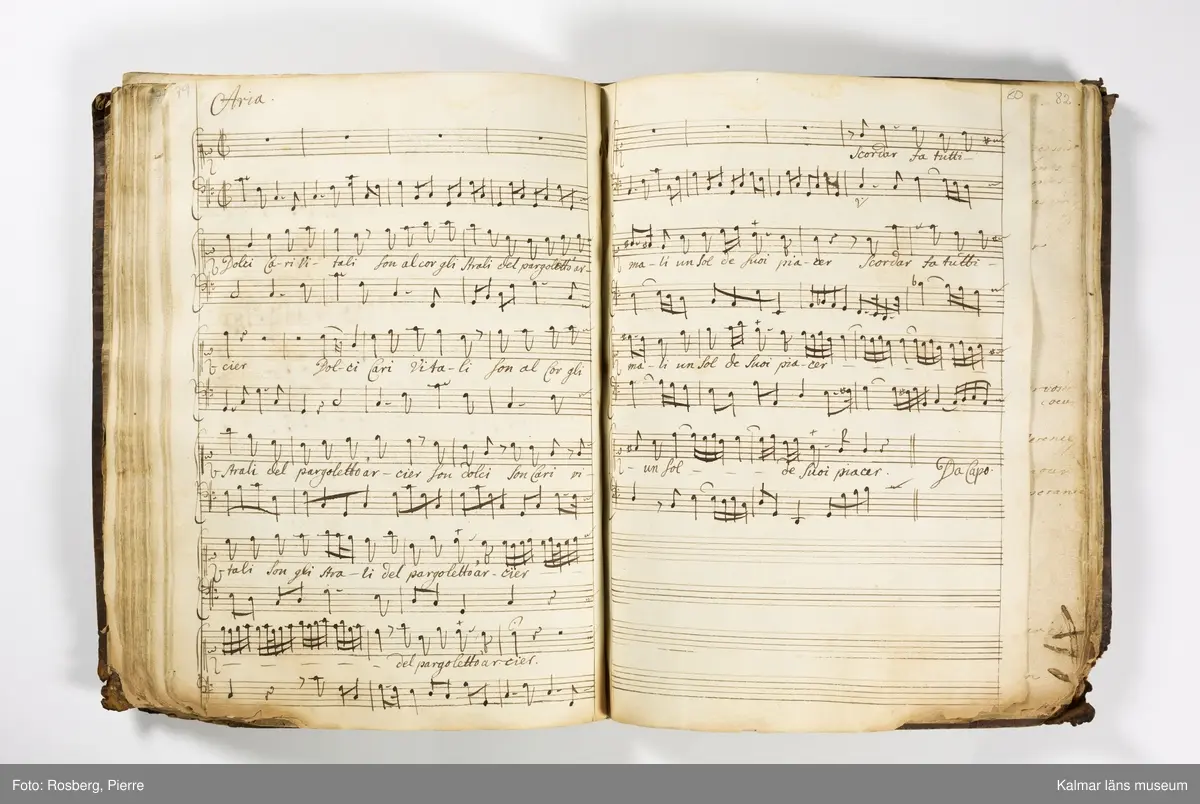 Aria.
Dolci Cari Vi-tali son al cor gli Strali del pargoletto ar-
cier Dol-ci Cari Vita-li son al Cor gli
Strali del pargoletto ar-cier son dolci son Cari vi
tali son gli Stra-li del pargoletto ar-cier
del pargoletto ar-cier.
60 82
Scordar fa tutti
ma-li un sol de Suoi pia-cer Scordar fa tutti
ma-li un sol de Suoi pia-cer
un sol de Suoi piacer. Da Capo.
Foto: Rosberg, Pierre
Kalmar läns museum